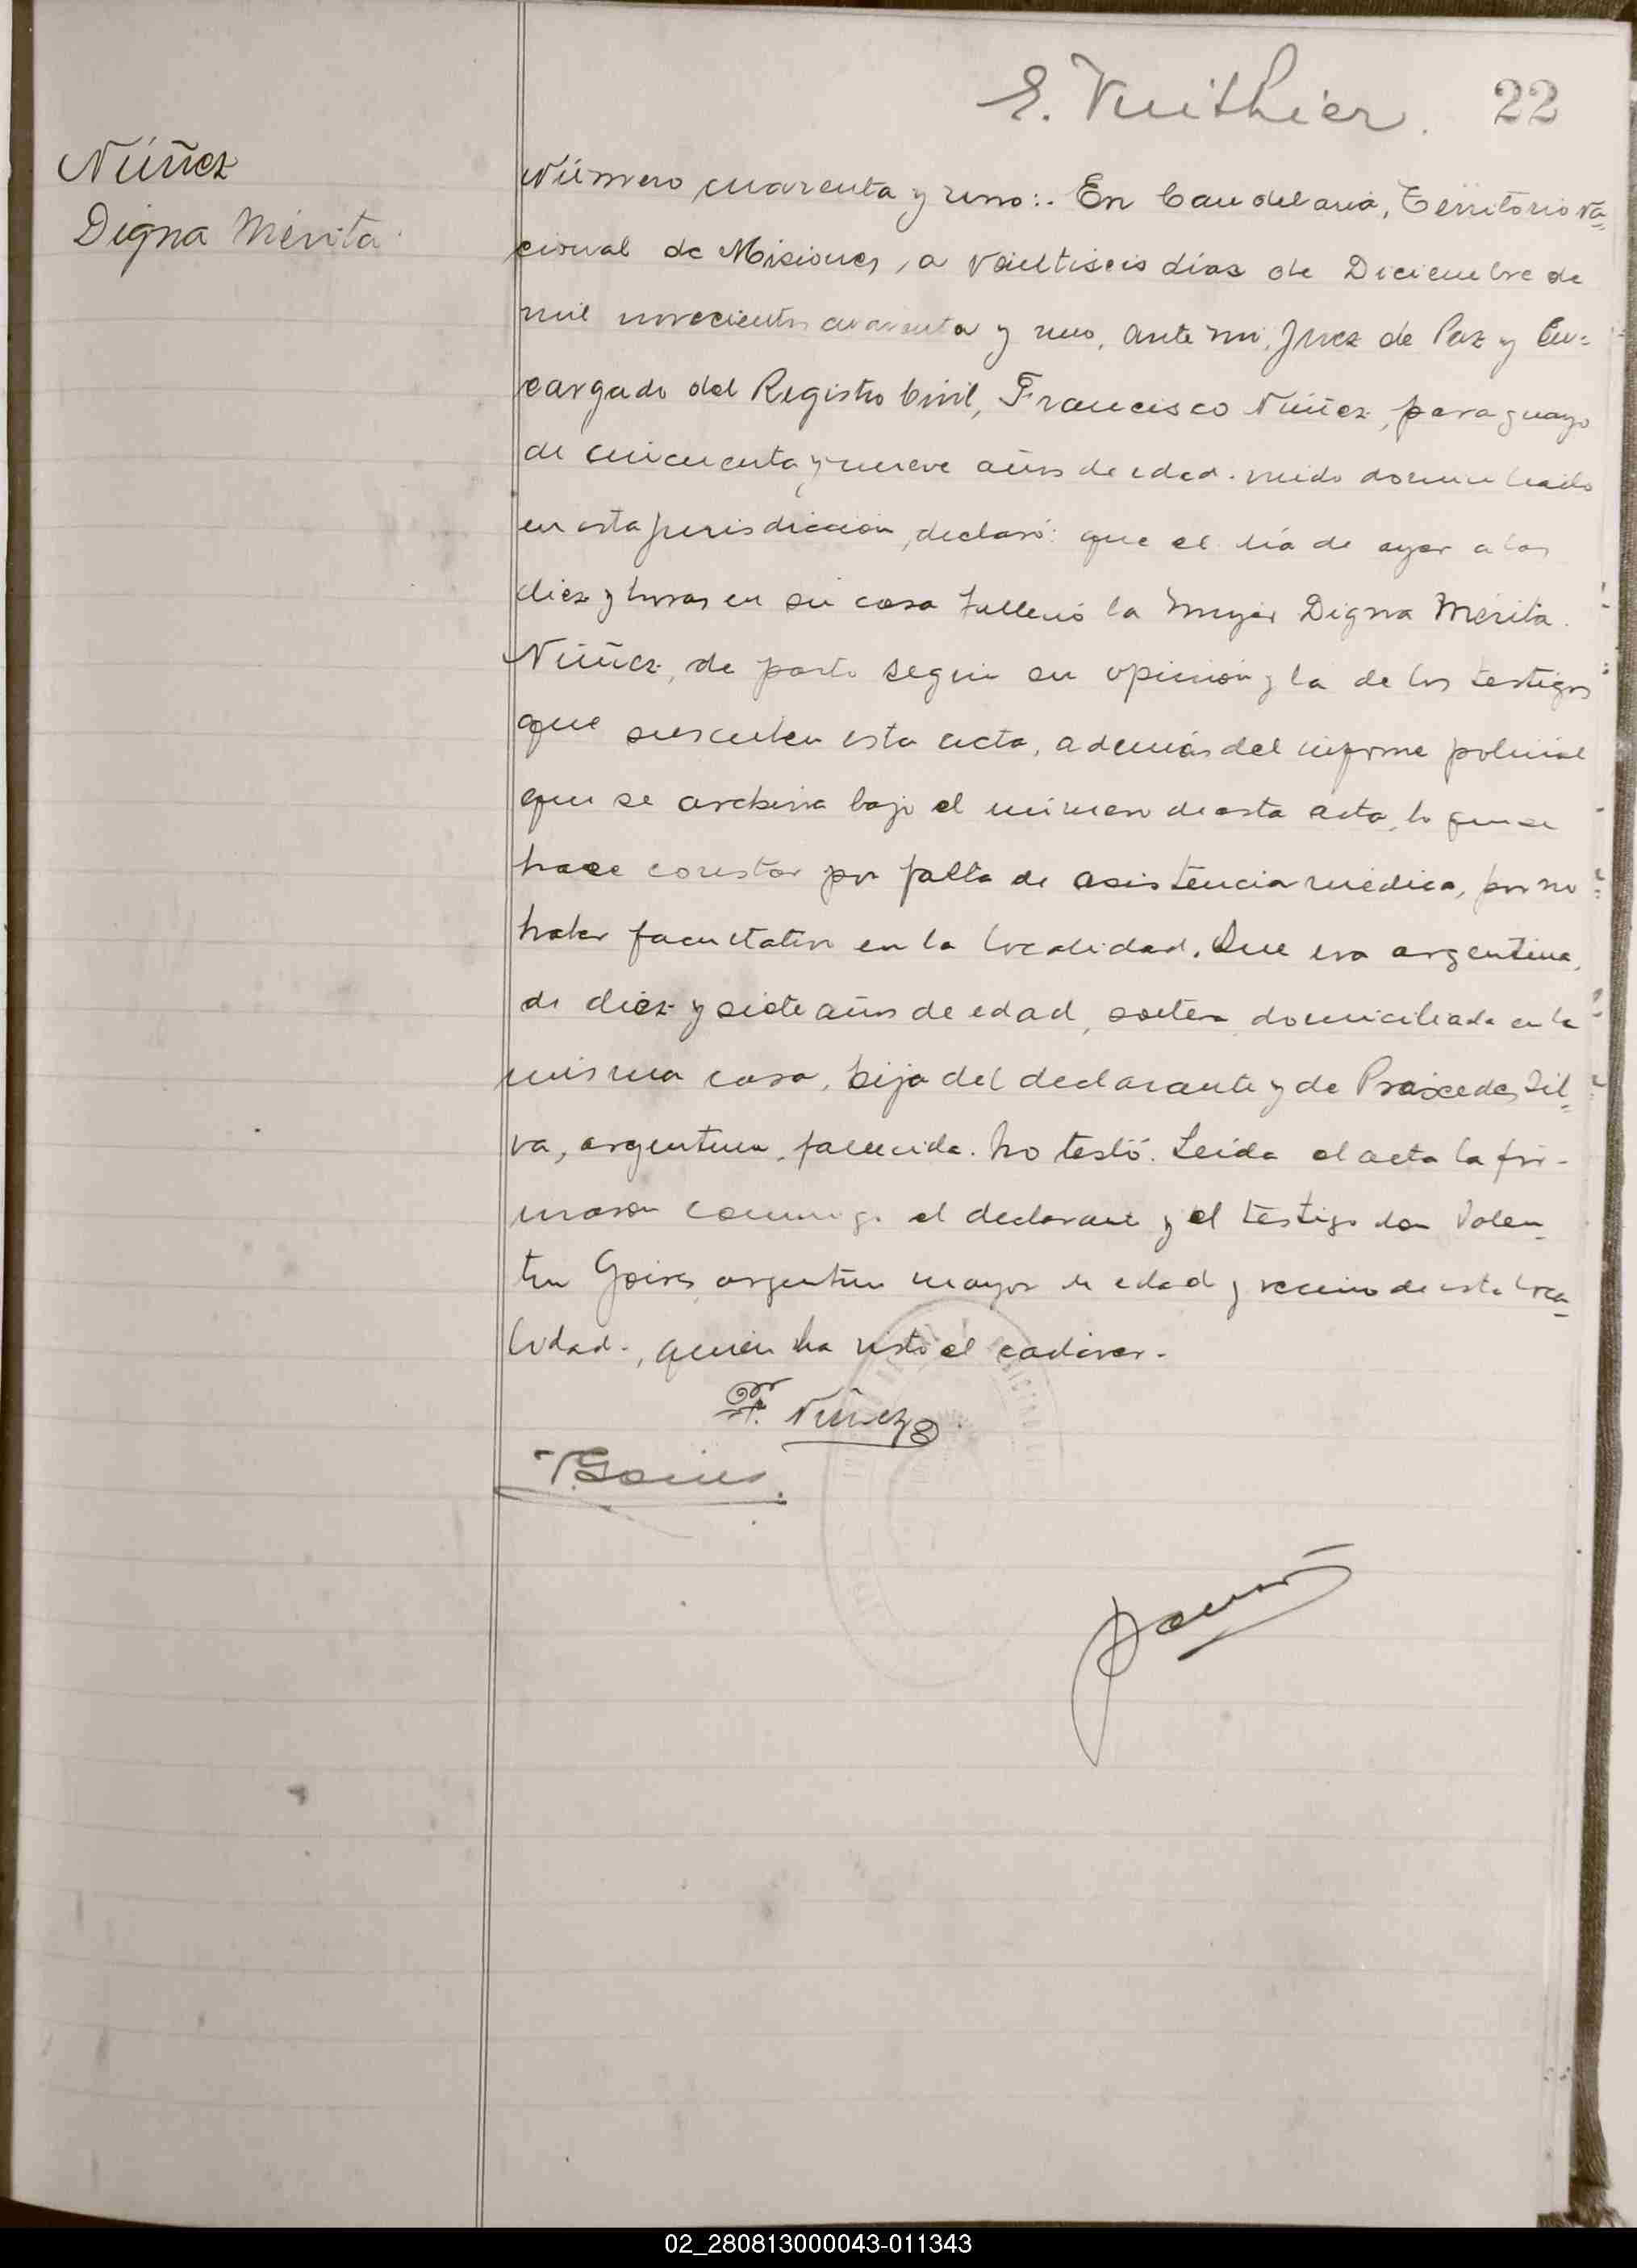 E. Vuithier. 22
Núñez
Digna Mérita.
Número cuarenta y uno:. En Candelaria, Territorio Na=
cional de Misiones, a veintiseis días de Diciembre de
mil novecientos cuarenta y uno, ante mi, Juez de Paz y En=
cargado del Registro Civil, Francisco Núñez, paraguayo
de cincuenta y nueve años de edad. viudo domiciliado
en esta jurisdicción, declaró: que el día de ayer a las
diez y horas en su casa falleció la mujer Digna Mérita
Núñez, de parto según su opinión y la de los testigos
que suscriben esta acta, además del informe policial
que se archiva bajo el número de esta acta, lo que se
hace constar por falta de asistencia médica, por no
haber facultativo en la localidad. Que era argentina,
de diez y siete años de edad, soltera domiciliada en la
misma casa, hija del declarante y de Práxedes Sil=
va, argentina, fallecida. No testó. Leída el acta la fir-
maron conmigo el declarante y el testigo don Valen-
tin Goires, argentino mayor de edad y vecino de esta loca-
lidad., quien ha visto el cadáver.-
F. Núñez
V. Goires.
02_280813000043-011343